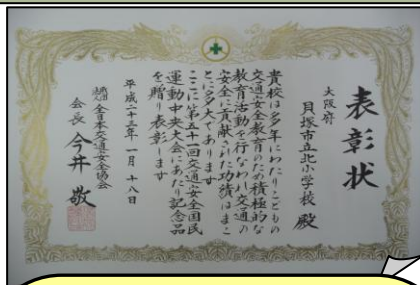 表彰状
大阪府
貝塚市立北小学校 殿
貴校は多年にわたりこどもの
交通安全教育のため積極的な
教育活動を行なわれ交通の
安全に貢献された功績はまこ
とに多大であります
ここに第五十一回交通安全国民
運動中央大会にあたり記念品
を贈り表彰します
平成二十三年一月十八日
全日本交通安全協会
会長 今井 敬